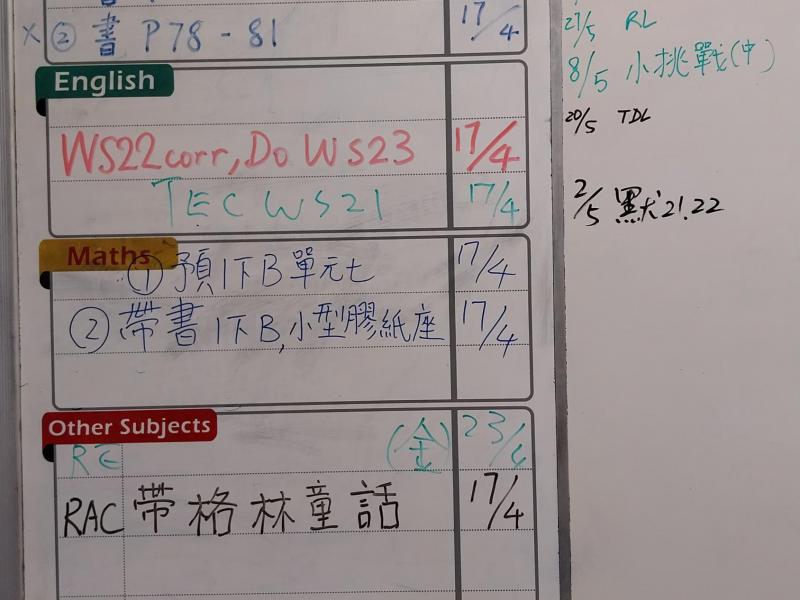 x ② 書 P78 - 81 17/4
English
WS22corr, Do WS23 17/4
TEC WS21 17/4
Maths
① 預1下B單元七 17/4
② 帶書1下B,小型膠紙座 17/4
Other Subjects
RE (金) 23/4
RAC 帶格林童話 17/4
27/5 RL
8/5 小挑戰(中)
20/5 TDL
2/5 默21.22